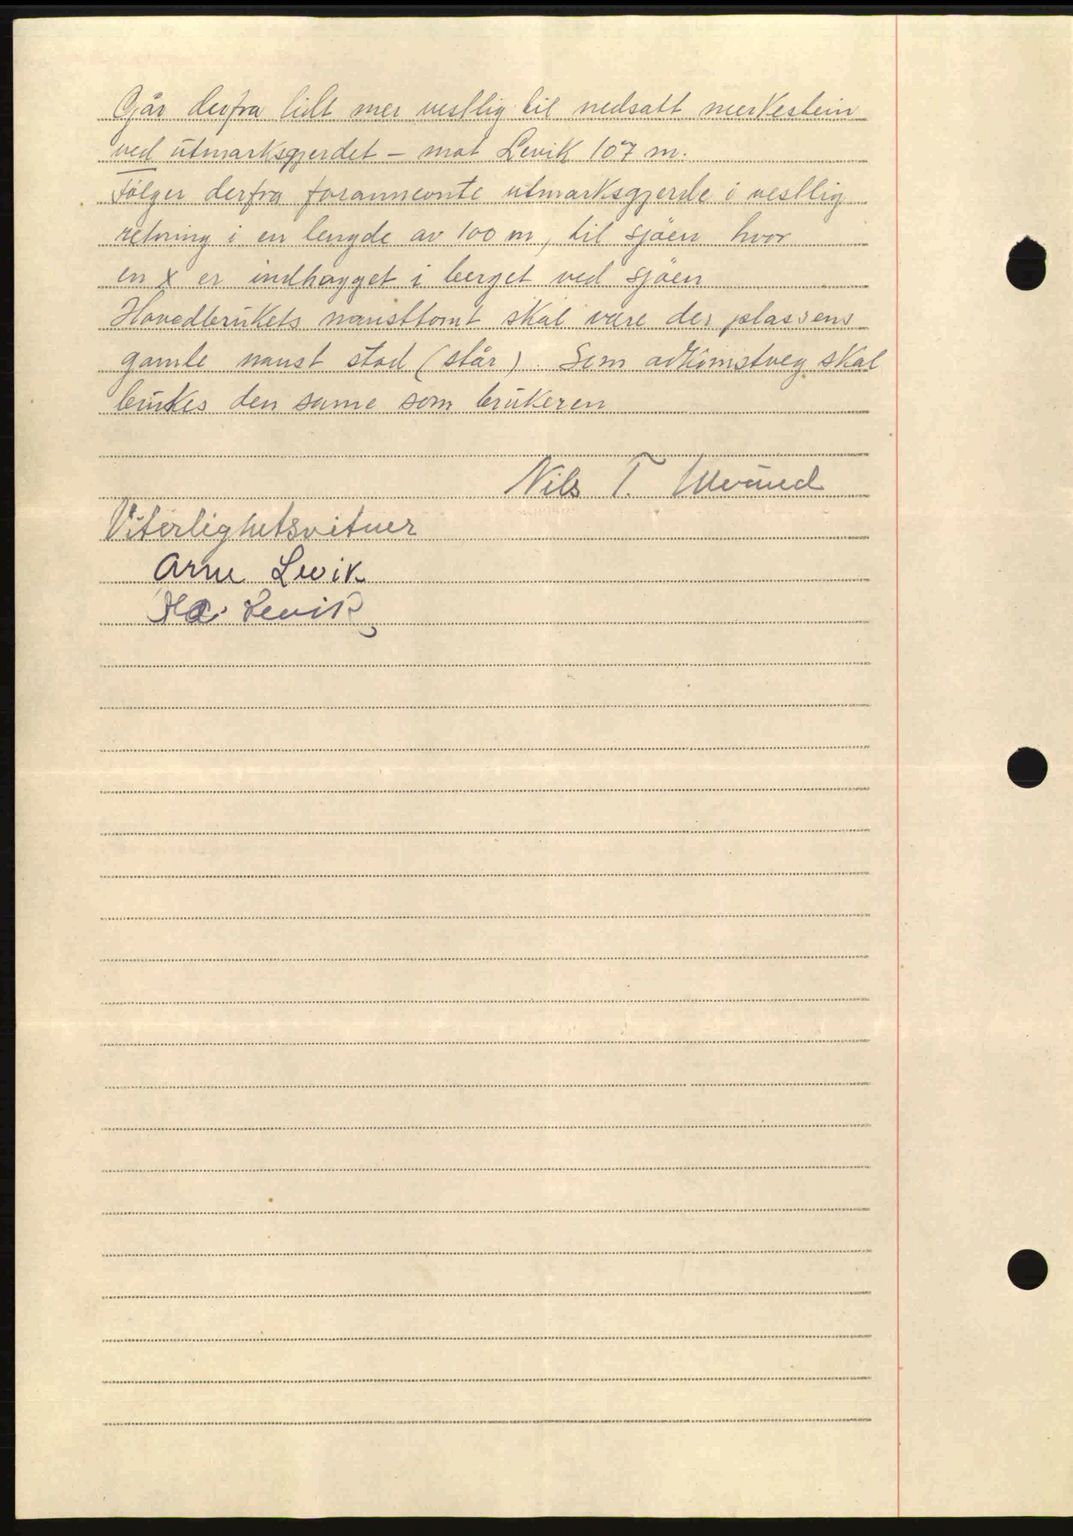 Går derfra lidt mer vestlig til nedsatt merkestein
ved utmarksgjerdet – mot Levik 107 m.
Følger derfra forannevnte utmarksgjerde i vestlig
retning i en lengde av 100 m, til sjøen hvor
en x er indhogget i berget ved sjøen
Hovedbrukets nausttomt skal være der plassens
gamle naust stod (står). Som adkomstveg skal
brukes den same som brukeren
Nils T. Ulvund
Viterlighetsvitner
Arne Levik
Levik